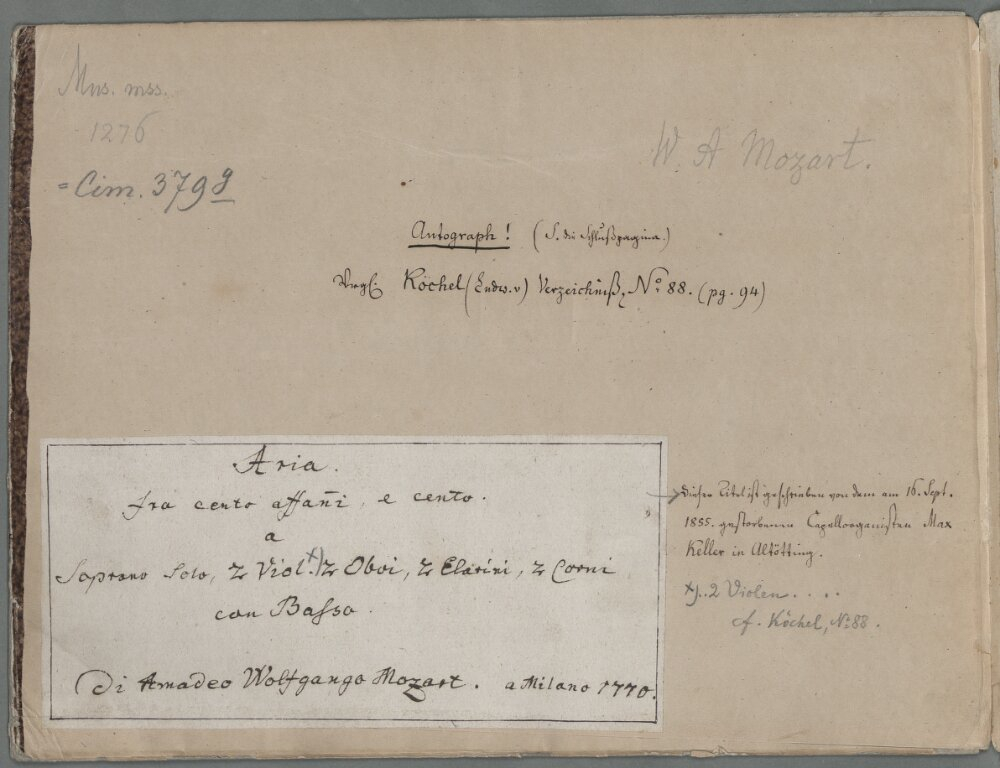 Mus. mss.
1276
= Cim. 379 g
W. A Mozart.
Autograph! (S. die Schlußpagina.)
Vrgl: Köchel (Ludw. v) Verzeichniß, No. 88. (pg. 94)
Aria.
fra cento affan̄i, e cento.
a
Soprano Solo, 2 Viol. x) 2 Oboi, 2 Clarini, 2 Corni
con Basso.
Di Amadeo Wolfgango Mozart. a Milano 1770.
Dieser Titel ist geschrieben von dem am 16. Sept.
1855. gestorbenen Capellorganisten Max
Keller in Altötting.
x).. 2 Violen . . . .
cf. Köchel, No. 88.